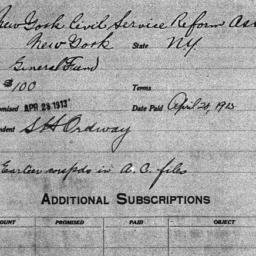 New York Civil Service Reform Ass
New York State NY
General Fund
$100 Terms
omised APR 28 1913 Date Paid April 28, 1913
ndent S H Ordway
Earlier corpds in A. C. files
ADDITIONAL SUBSCRIPTIONS
OUNT PROMISED PAID OBJECT